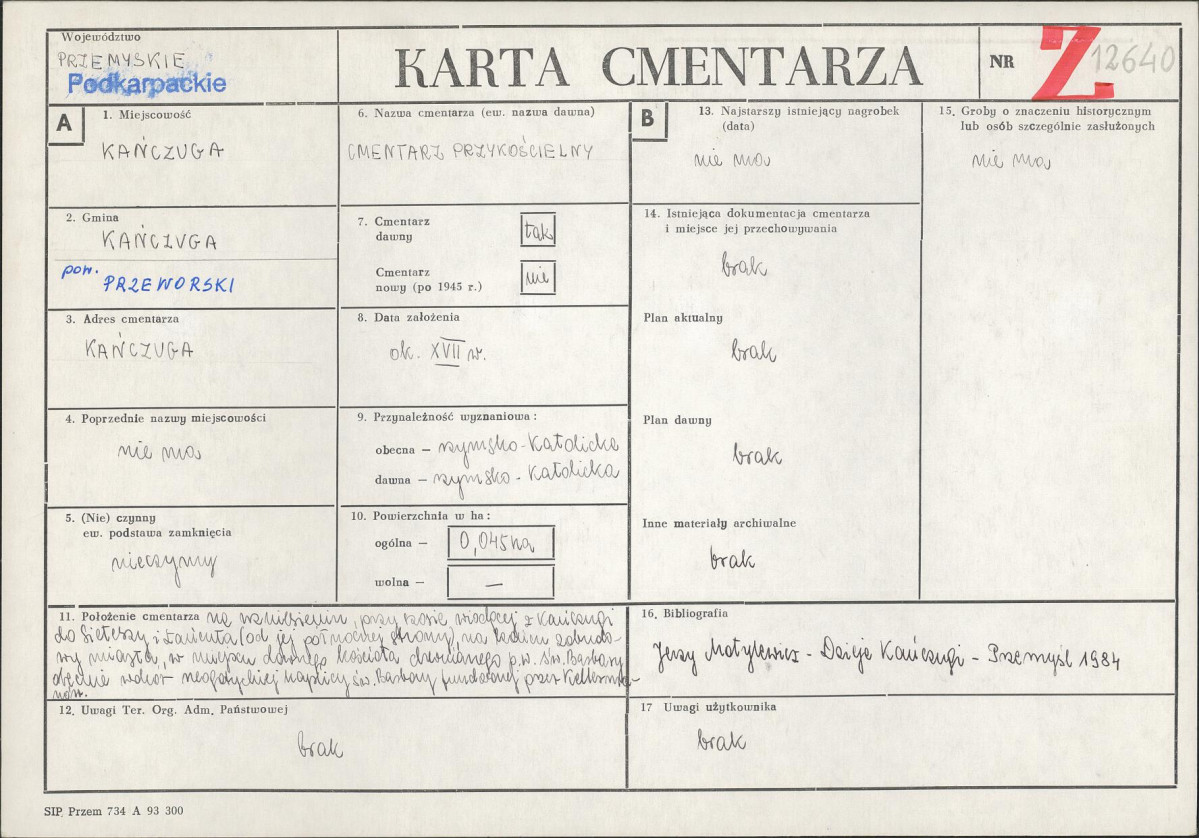 Województwo
PRZEMYSKIE
Podkarpackie
KARTA CMENTARZA
NR
Z 12640
A
1. Miejscowość
KAŃCZUGA
2. Gmina
KAŃCZUGA
pow. PRZEWORSKI
3. Adres cmentarza
KAŃCZUGA
4. Poprzednie nazwy miejscowości
nie ma
5. (Nie) czynny
ew. podstawa zamknięcia
nieczynny
6. Nazwa cmentarza (ew. nazwa dawna)
CMENTARZ PRZYKOŚCIELNY
7. Cmentarz
dawny
tak
Cmentarz
nowy (po 1945 r.)
nie
8. Data założenia
ok. XVII w.
9. Przynależność wyznaniowa :
obecna — rzymsko-katolicka
dawna — rzymsko-katolicka
10. Powierzchnia w ha :
ogólna — 0,045ha
wolna — —
B
13. Najstarszy istniejący nagrobek
(data)
nie ma
14. Istniejąca dokumentacja cmentarza
i miejsce jej przechowywania
brak
Plan aktualny
brak
Plan dawny
brak
Inne materiały archiwalne
brak
15. Groby o znaczeniu historycznym
lub osób szczególnie zasłużonych
nie ma
11. Położenie cmentarza na wzniesieniu, przy szosie wiodącej z Kańczugi
do Sieteszy i Łańcuta (od jej północnej strony), na tle zabudo-
wy miasta, w miejscu dawnego kościoła drewnianego p.w. św. Barbary
obecnie wokół neogotyckiej kaplicy św. Barbary fundowanej przez Kellerma-
nów.
12. Uwagi Ter. Org. Adm. Państwowej
brak
16. Bibliografia
Jerzy Motylewicz - Dzieje Kańczugi - Przemyśl 1984
17 Uwagi użytkownika
brak
SIP. Przem 734 A 93 300